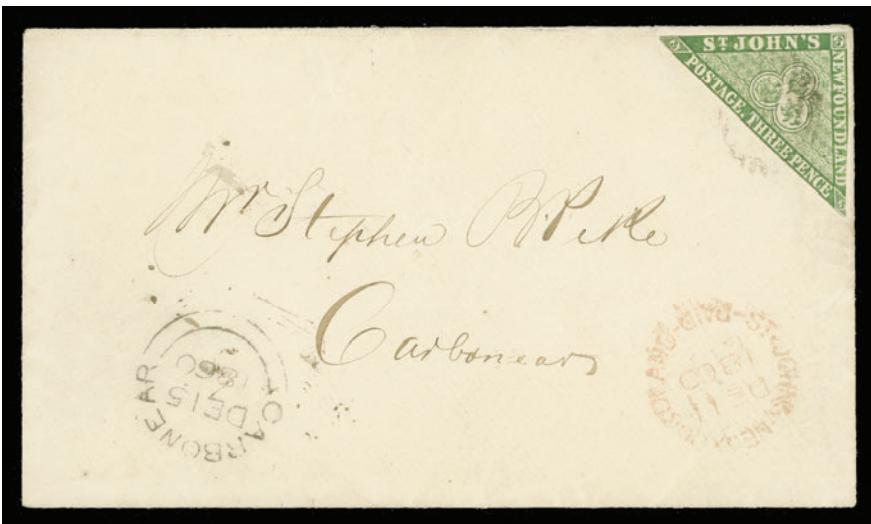 ST JOHN'S
NEWFOUNDLAND
POSTAGE. THREE PENCE
Mr Stephen B. Pike
Carbonear
CARBONEAR
DE 15
1860
PAID - ST. JOHN'S, NEWFOUNDLAND
1860